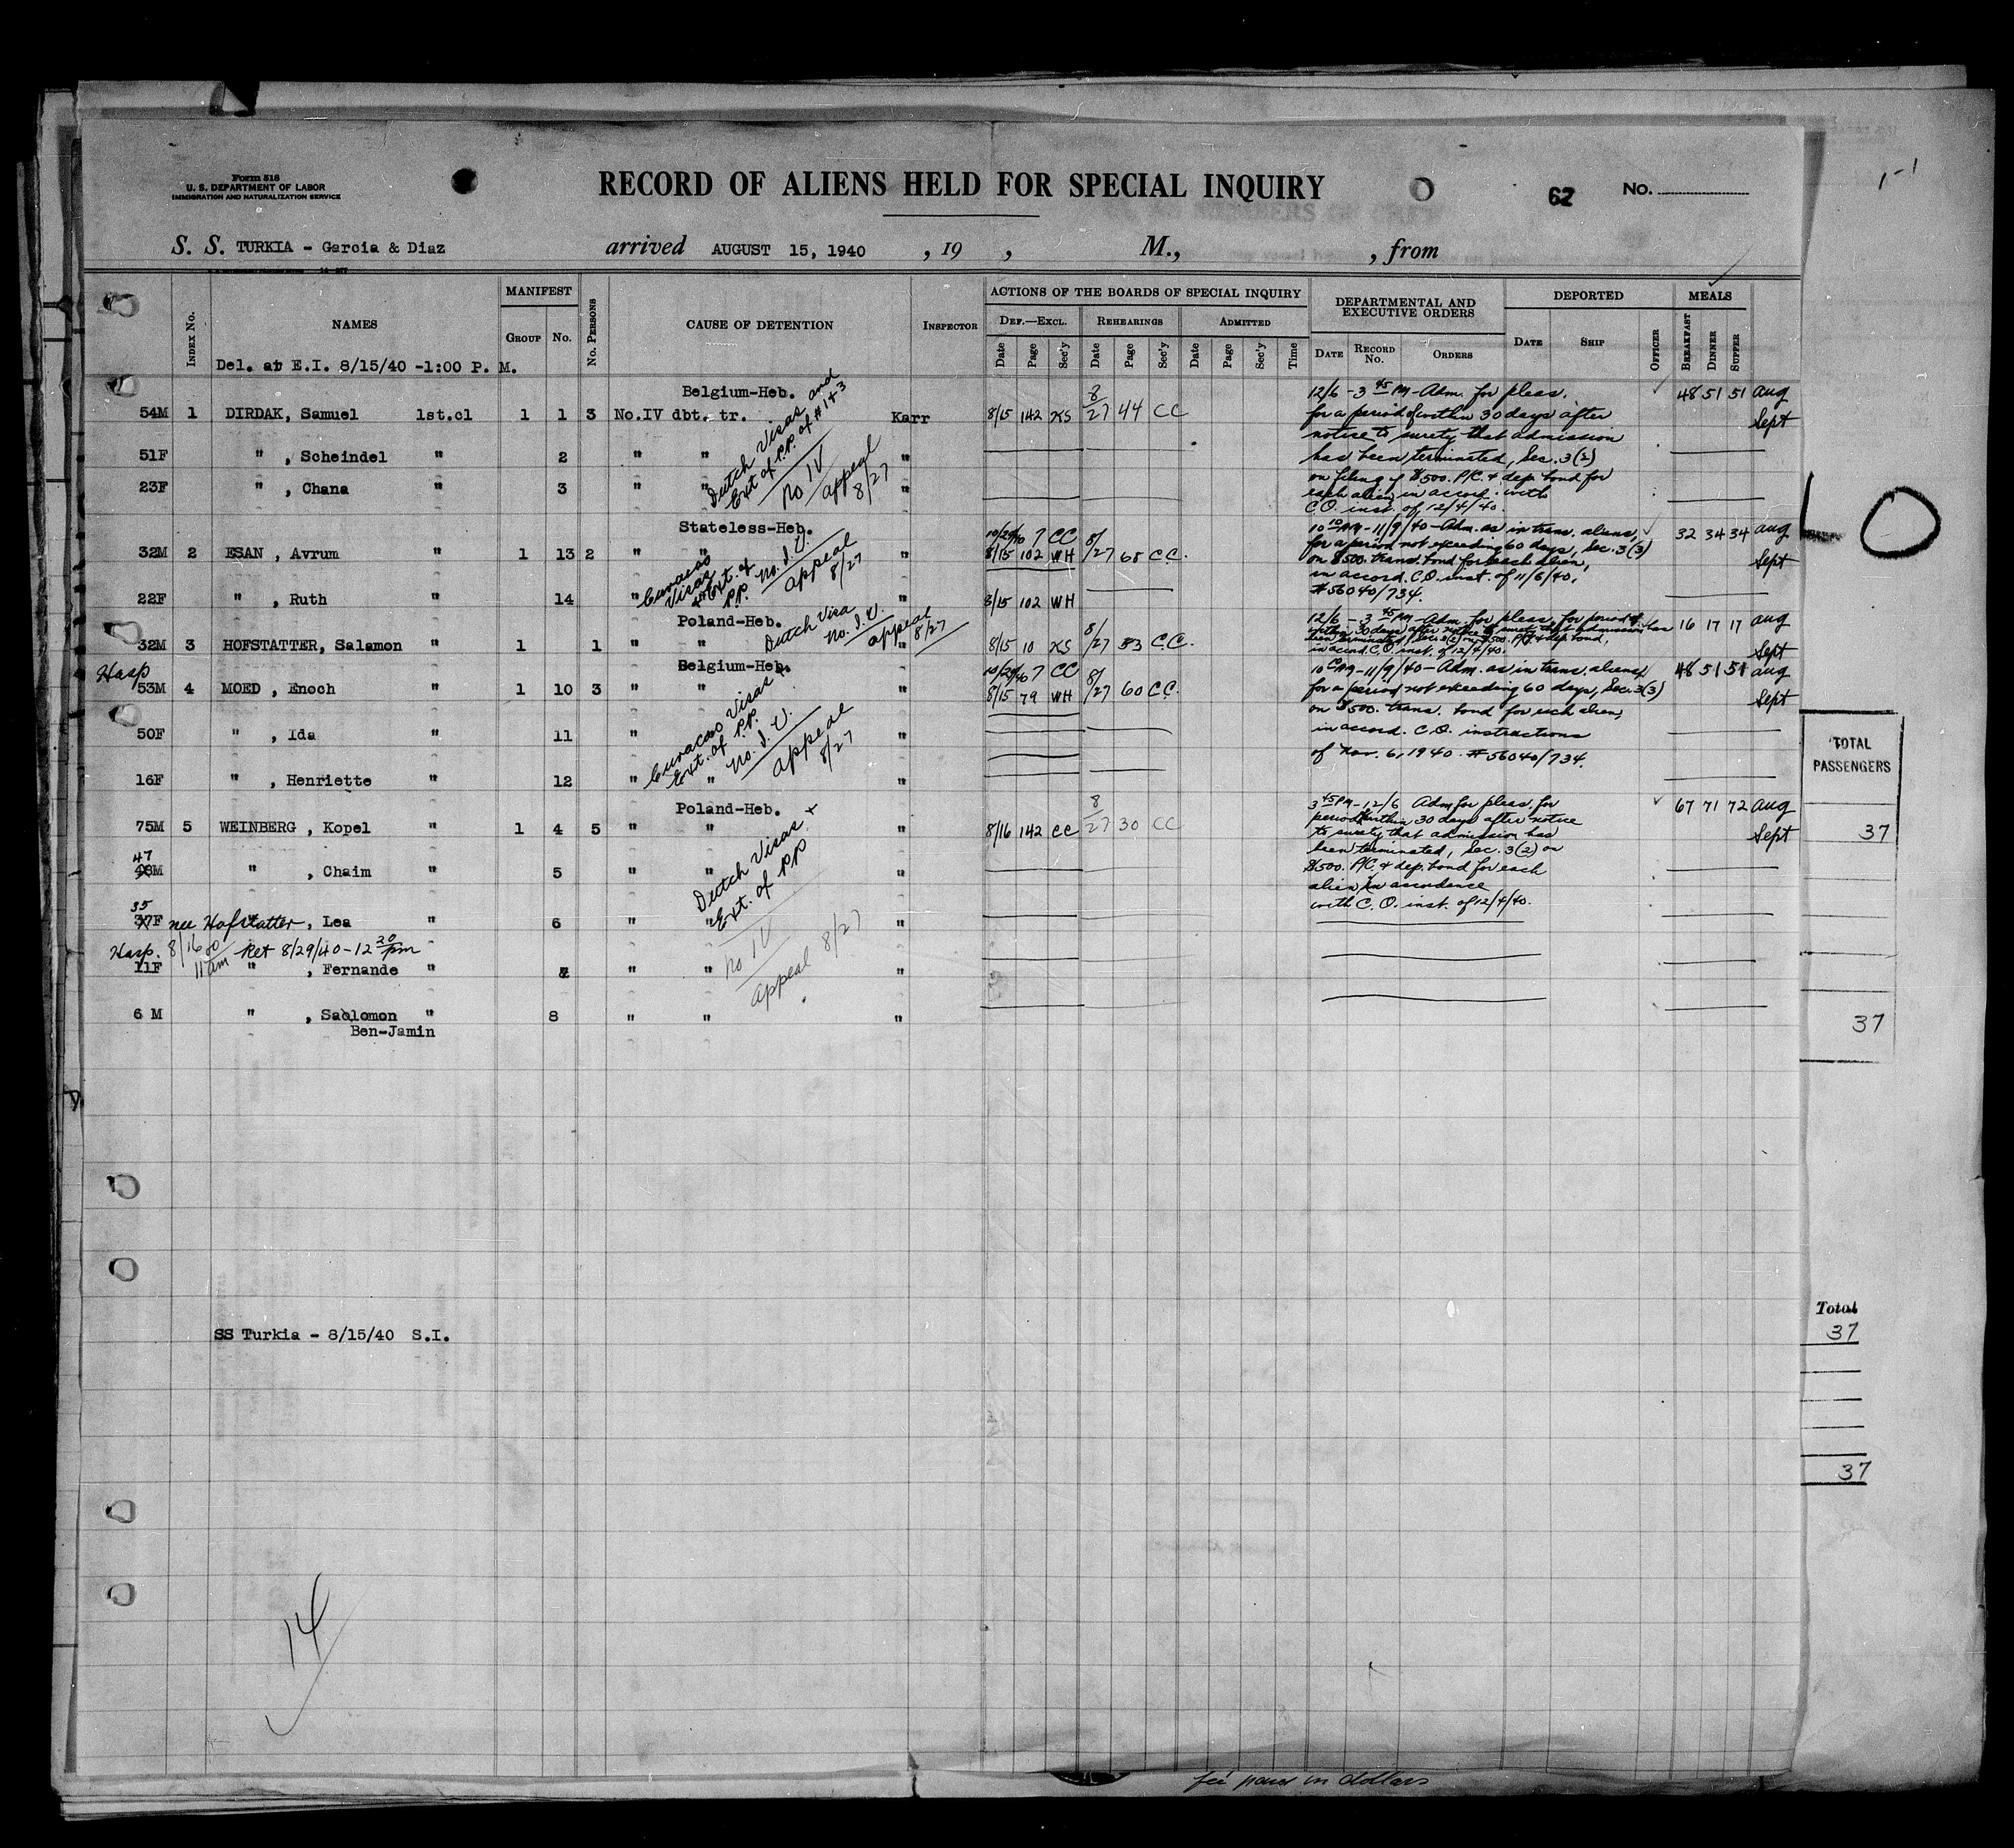 Form 518
U. S. DEPARTMENT OF LABOR
IMMIGRATION AND NATURALIZATION SERVICE
RECORD OF ALIENS HELD FOR SPECIAL INQUIRY
62
No.
S. S. TURKIA - Garcia & Diaz arrived AUGUST 15, 1940 , 19 , M., , from
INDEX No. NAMES MANIFEST GROUP No. No. PERSONS CAUSE OF DETENTION INSPECTOR
ACTIONS OF THE BOARDS OF SPECIAL INQUIRY
DEF.—EXCL. REHEARINGS ADMITTED
Date Page Sec'y Date Page Sec'y Date Page Sec'y Time
DEPARTMENTAL AND EXECUTIVE ORDERS
DATE RECORD No. ORDERS
DEPORTED
DATE SHIP OFFICER
MEALS
BREAKFAST DINNER SUPPER
Del. at E.I. 8/15/40 -1:00 P. M.
Belgium-Heb.
54M 1 DIRDAK, Samuel 1st.cl 1 1 3 No.IV dbt. tr. Karr 8/15 142 KS 8/27 44 CC
Dutch Visas and
Ext of P.P. of #1+3
No IV
appeal
8/27
12/6 - 3 45 PM - Adm. for pleas.
for a period of within 30 days after
notice to surety that admission
has been terminated, Sec. 3(2)
on filing of $500. P/C. & dep. bond for
each alien in accord. with
C.O. inst. of 12/4/40.
48 51 51 Aug
Sept
51F " , Scheindel " 2 " " "
23F " , Chana " 3 " " "
Stateless-Heb.
10/29/40 7 CC
32M 2 ESAN , Avrum " 1 13 2 " " " 8/15 102 WH 8/27 68 C.C.
Curacao
Visas
+ Ext. of
P.P.
No. I.V.
appeal
8/27
10 10 AM - 11/9/40 - Adm. as in trans. aliens,
for a period not exceeding 60 days, Sec. 3(3)
on $500. trans. bond for each alien,
in accord. C.O. inst. of 11/6/40,
#56040/734.
32 34 34 Aug
Sept
22F " , Ruth " 14 " " 8/15 102 WH
Poland-Heb.
32M 3 HOFSTATTER, Salamon " 1 1 " " " 8/15 10 KS 8/27 53 C.C.
Dutch Visa
No. I.V.
appeal
8/27
12/6 - 3 45 PM - Adm. for pleas. for period of
within 30 days after notice to surety that admission has
been terminated, Sec. 3(2) on $500. P/C. & dep. bond,
in accord. C.O. inst. of 12/4/40.
16 17 17 Aug
Sept
Hosp
Belgium-Heb.
10/29/40 7 CC
53M 4 MOED , Enoch " 1 10 3 " " " 8/15 79 WH 8/27 60 C.C.
Curacao Visas +
Ext. of P.P.
No. I.V.
appeal
8/27
AM - 11/9/40 - Adm. as in trans. aliens,
for a period not exceeding 60 days, Sec. 3(3)
on $500. trans. bond for each alien,
in accord. C.O. instructions
of Nov. 6, 1940. #56040/734.
48 51 51 Aug
Sept
50F " , Ida " 11 " "
16F " , Henriette " 12 " " "
Poland-Heb.
75M 5 WEINBERG , Kopel " 1 4 5 " " " 8/16 142 CC 8/27 30 CC
Dutch Visas +
Ext. of P.P
No IV
appeal 8/27
3 45 PM - 12/6 Adm for pleas. for
period within 30 days after notice
to surety that admission has
been terminated, Sec. 3(2) on
$500. P/C. & dep. bond for each
alien in accordence
with C.O. inst. of 12/4/40.
67 71 72 Aug
Sept
47
48M " , Chaim " 5 " " "
35
37F nee Hofstatter , Lea " 6 " " "
Hosp. 8/16 11 am Ret 8/29/40 - 12 20 pm
11F " , Fernande " 7 " " "
6 M " , Saolomon " 8 " " "
Ben-Jamin
TOTAL
PASSENGERS
37
37
Total
37
37
SS Turkia - 8/15/40 S.I.
14
fee paid in dollars